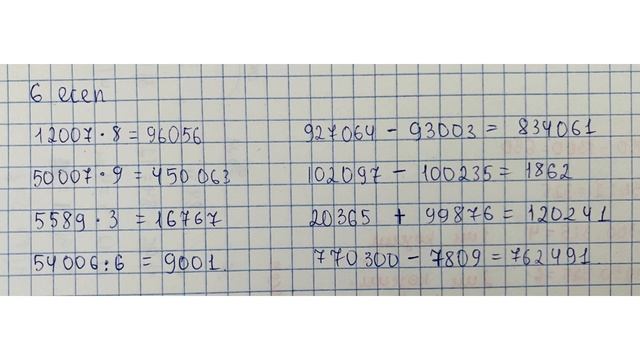 6 есеп
12007 · 8 = 96056
50007 · 9 = 450 063
5589 · 3 = 16767
54006 : 6 = 9001.
927064 - 93003 = 834061
102097 - 100235 = 1862
20365 + 99876 = 120241
770300 - 7809 = 762491.